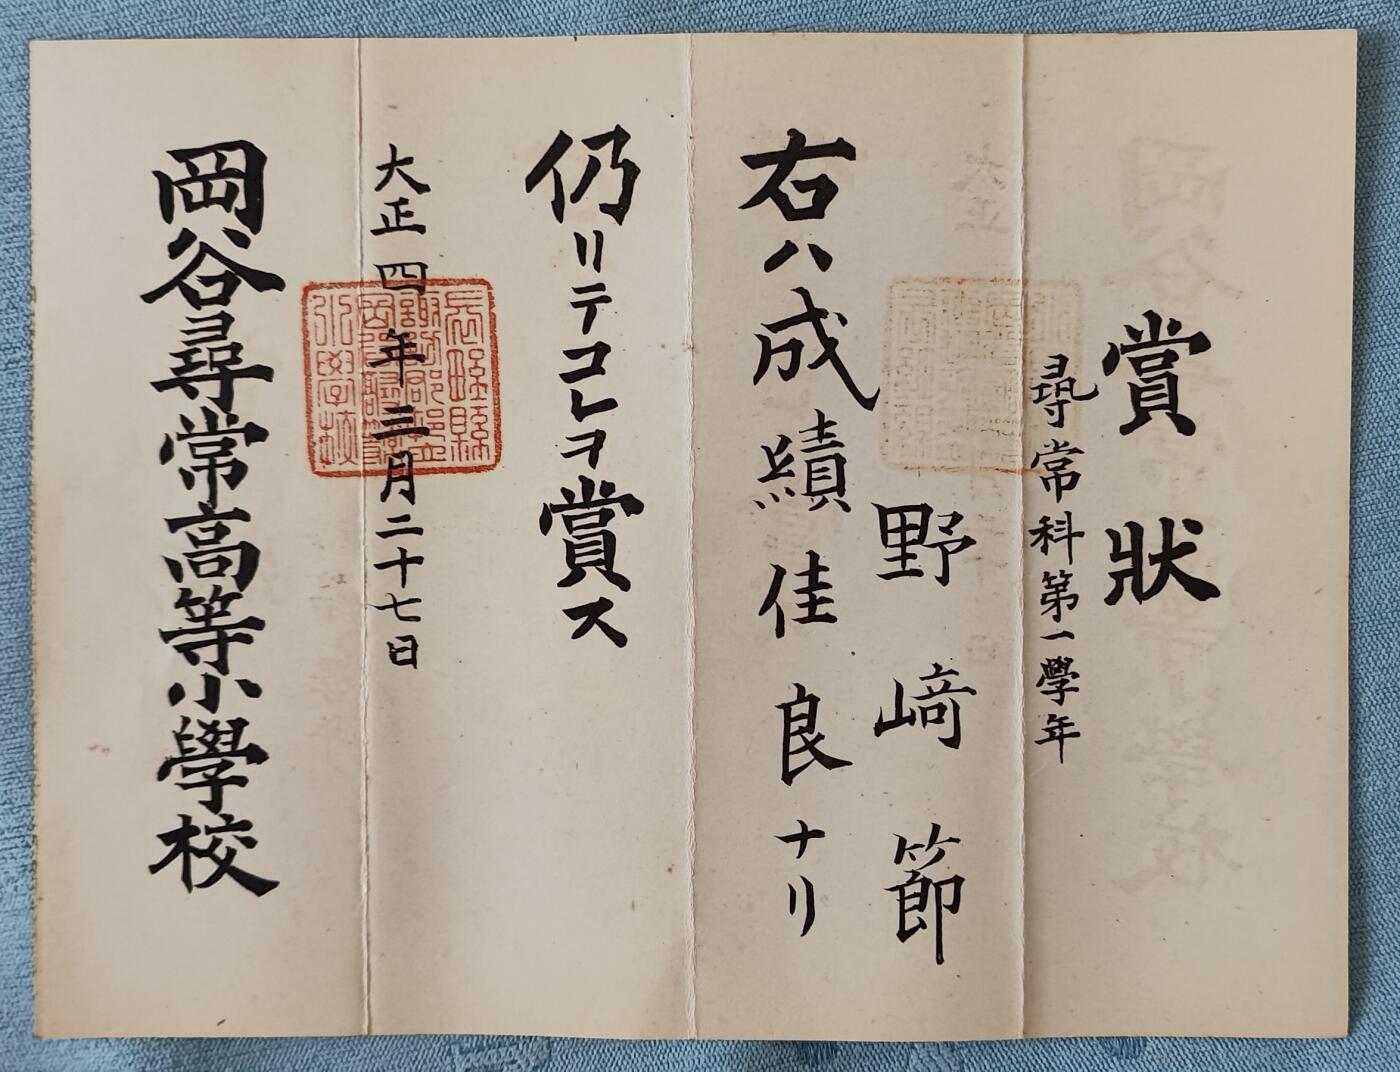 賞狀
尋常科第一學年
野﨑節
右ハ成績佳良ナリ
仍リテコレヲ賞ス
大正四年三月二十七日
長野縣
諏訪郡平野
岡谷尋常高等小學校